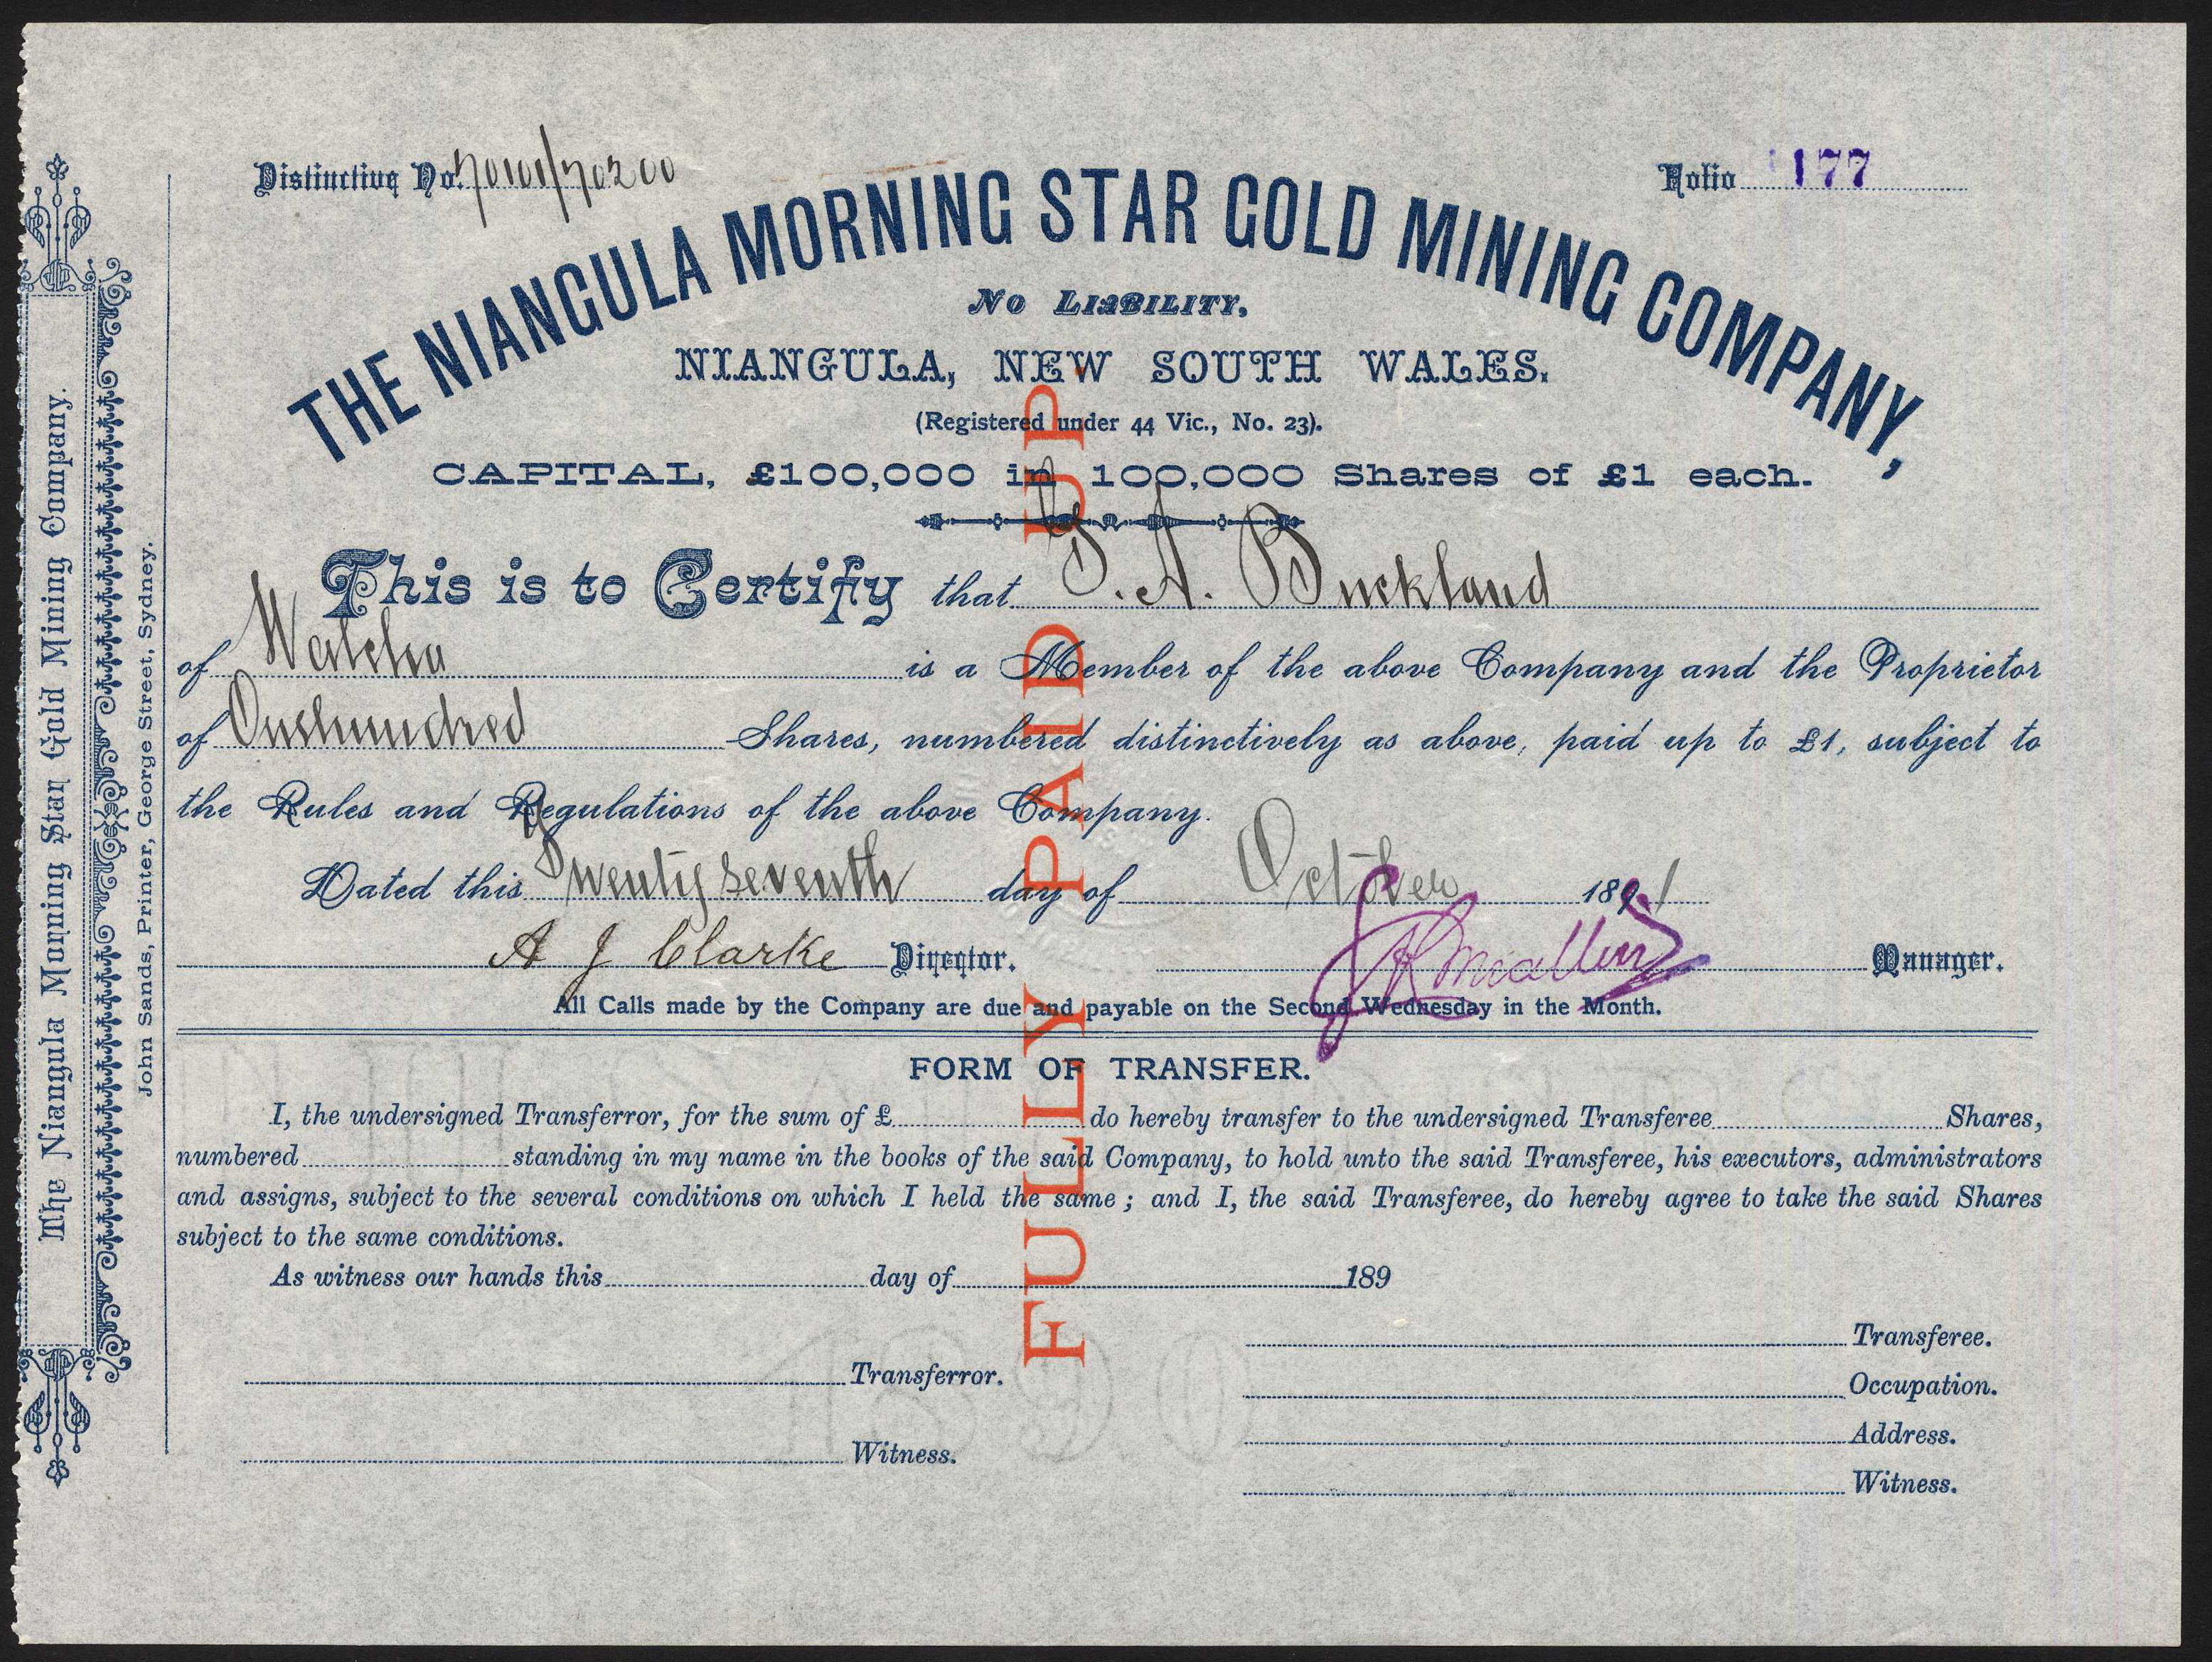 Distinctive No. 70101/70200
Folio 177
THE NIANGULA MORNING STAR GOLD MINING COMPANY,
No LIABILITY,
NIANGULA, NEW SOUTH WALES.
(Registered under 44 Vic., No. 23).
CAPITAL, £100,000 in 100,000 Shares of £1 each.
This is to Certify that T. A. Buckland
of Walcha is a Member of the above Company and the Proprietor
of One hundred Shares, numbered distinctively as above, paid up to £1, subject to
the Rules and Regulations of the above Company.
Dated this Twenty seventh day of October 1891
A J Clarke Director. Manager.
All Calls made by the Company are due and payable on the Second Wednesday in the Month.
FORM OF TRANSFER.
I, the undersigned Transferror, for the sum of £ do hereby transfer to the undersigned Transferee Shares,
numbered standing in my name in the books of the said Company, to hold unto the said Transferee, his executors, administrators
and assigns, subject to the several conditions on which I held the same ; and I, the said Transferee, do hereby agree to take the said Shares
subject to the same conditions.
As witness our hands this day of 189
Transferee.
Transferror.
Occupation.
Address.
Witness.
Witness.
FULLY PAID UP
The Niangula Morning Star Gold Mining Company.
John Sands, Printer, George Street, Sydney.